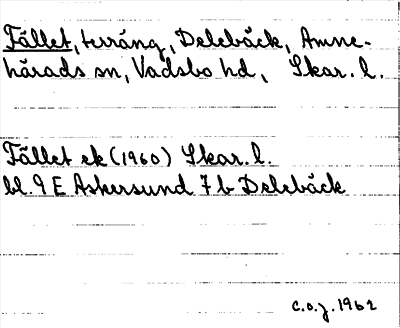 Fållet, terräng, Delebäck, Amne-
härads sn, Vadsbo hd, Skar. l.
Fållet ek (1960) Skar. l.
bl. 9 E Askersund 7 b Delebäck
C.O.J. 1962